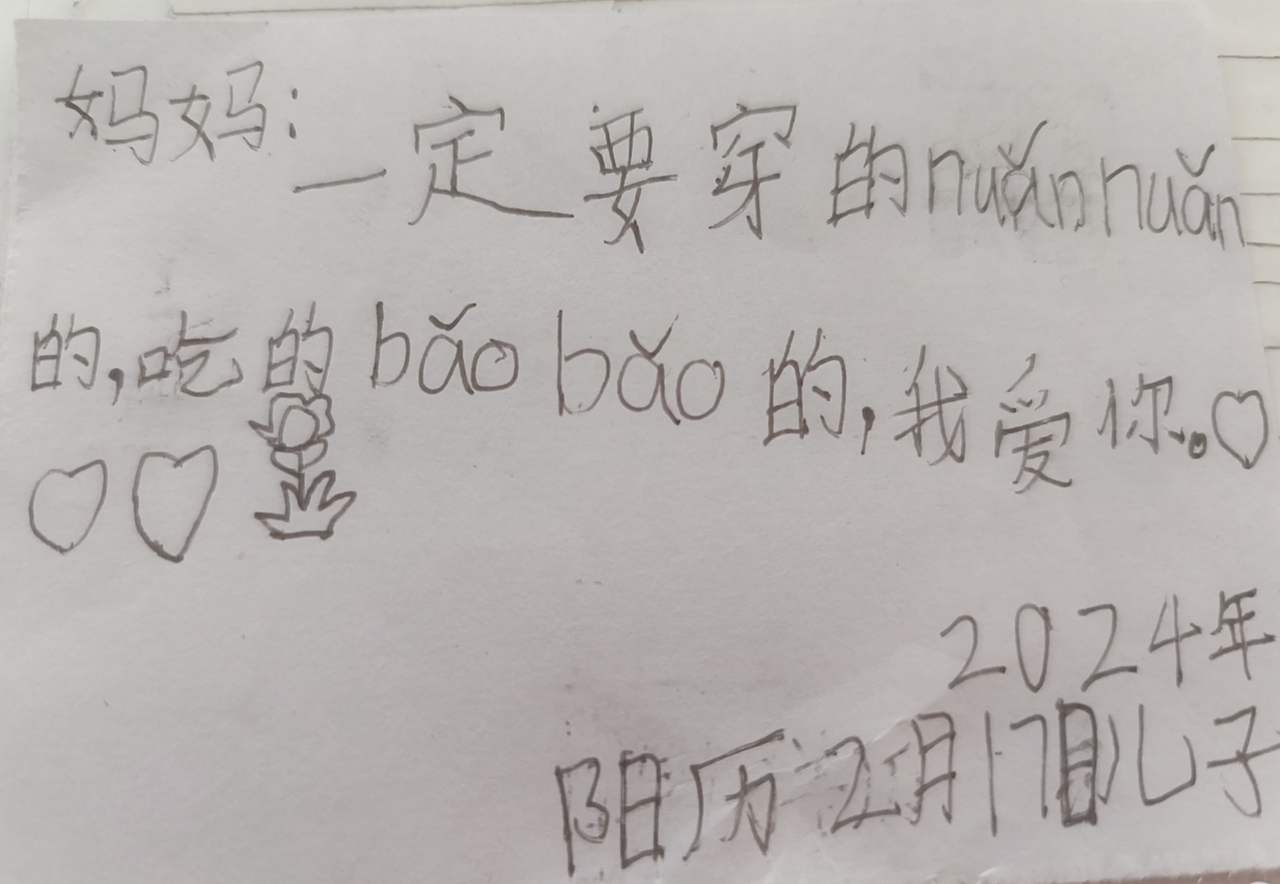 妈妈：一定要穿的nuǎnnuǎn
的,吃的bǎobǎo的,我爱你。
2024年
阳历2月17日儿子